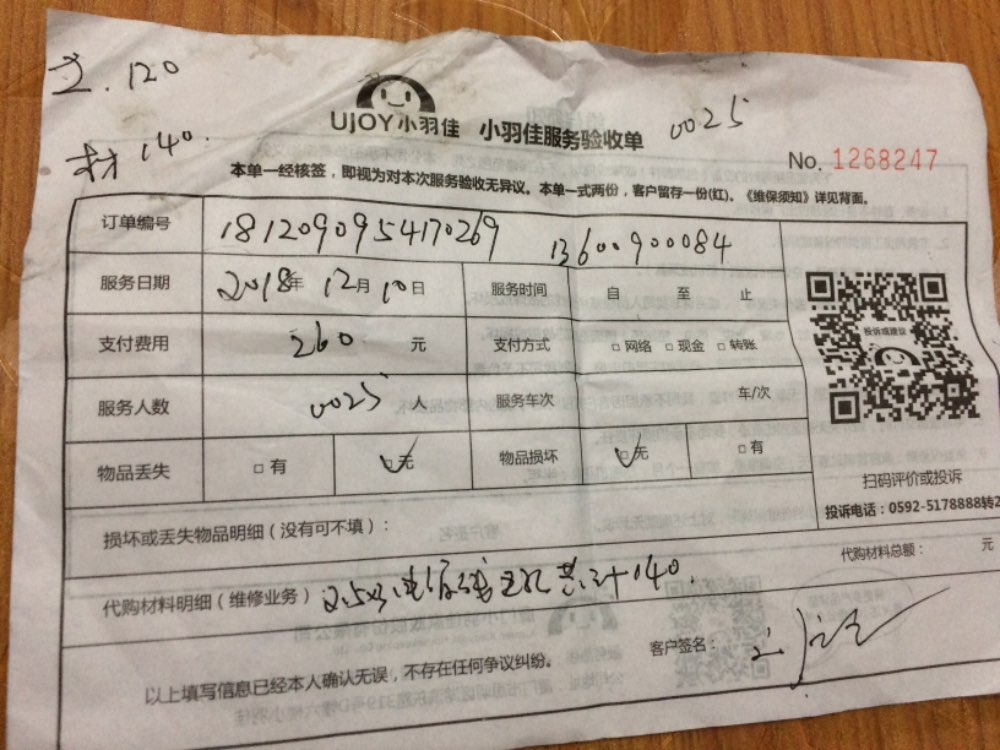 工.120
材 140.
UJOY小羽佳 小羽佳服务验收单
0025
No. 1268247
本单一经核签，即视为对本次服务验收无异议。本单一式两份，客户留存一份(红)。《维保须知》详见背面。
订单编号 1812090954170269 13600900084
服务日期 2018年 12月 10日 服务时间 自 至 止
支付费用 260. 元 支付方式 □网络 □现金 □转账
投诉或建议
服务人数 0025 人 服务车次 车/次
物品丢失 □有 □无 物品损坏 □无 □有
扫码评价或投诉
投诉电话：0592-5178888转2
损坏或丢失物品明细（没有可不填）：
代购材料总额： 元
代购材料明细（维修业务） 140.
客户签名：
以上填写信息已经本人确认无误，不存在任何争议纠纷。